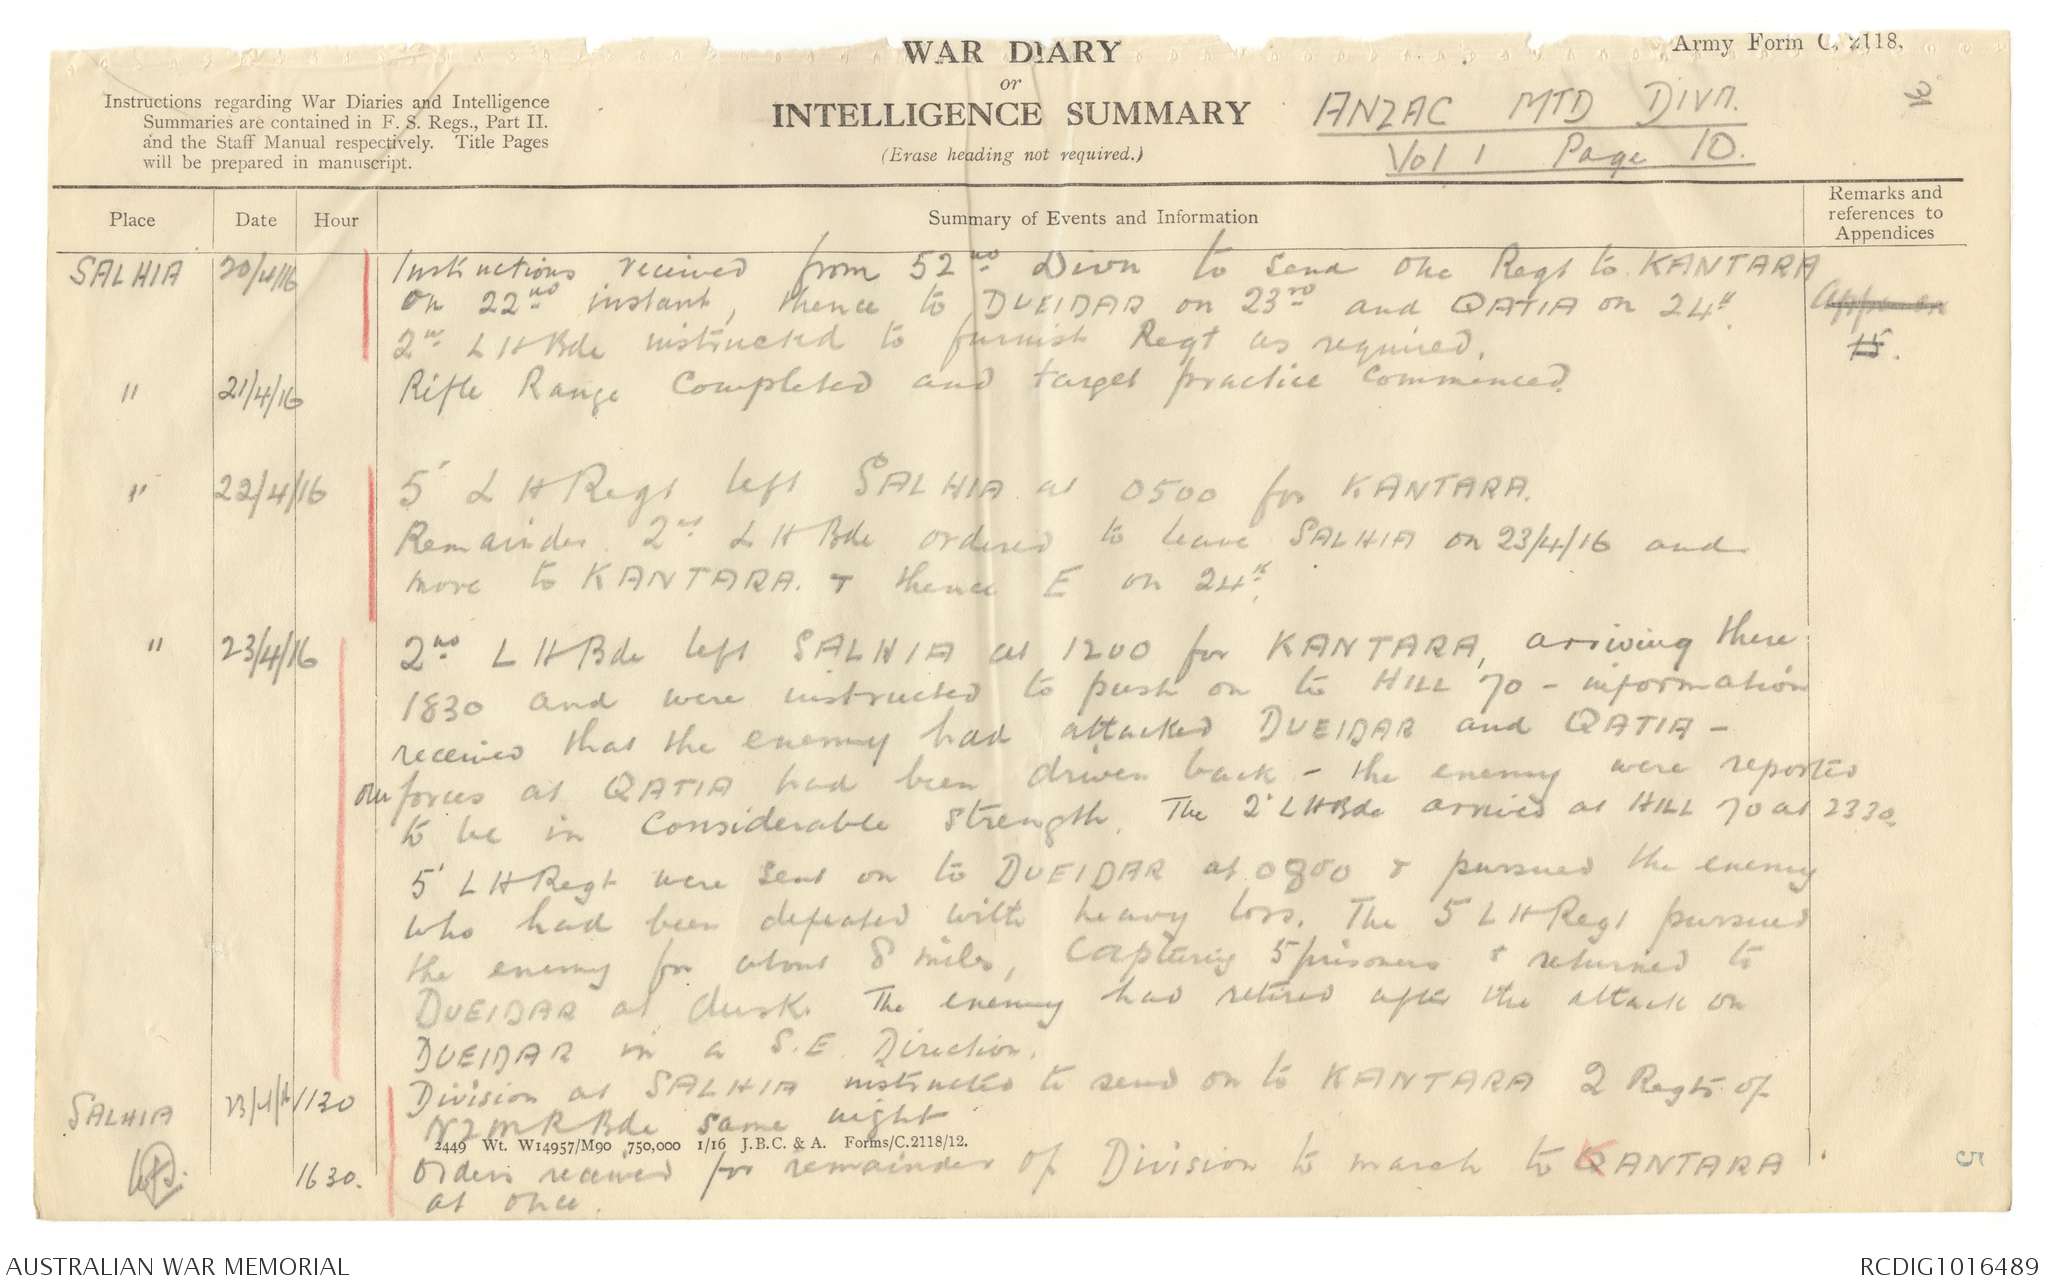 WAR DIARY
or
INTELLIGENCE SUMMARY
(Erase heading not required.)
Army Form C. 2118.
Instructions regarding War Diaries and Intelligence
Summaries are contained in F. S. Regs., Part II.
and the Staff Manual respectively. Title Pages
will be prepared in manuscript.
ANZAC MTD DIVN.
Vol 1 Page 10.
Place Date Hour Summary of Events and Information Remarks and
references to
Appendices
SALHIA 20/4/16 Instructions received from 52nd Divn to send one Regt to KANTARA
on 22nd instant, thence to DUEIDAR on 23rd and QATIA on 24th.
2nd L H Bde instructed to furnish Regt as required. 15.
" 21/4/16 Rifle Range completed and target practice commenced.
" 22/4/16 5' L H Regt left SALHIA at 0500 for KANTARA.
Remainder 2nd L H Bde ordered to leave SALHIA on 23/4/16 and
move to KANTARA. & thence E on 24th.
" 23/4/16 2nd L H Bde left SALHIA at 1200 for KANTARA, arriving there
1830 and were instructed to push on to HILL 70 - information
received that the enemy had attacked DUEIDAR and QATIA -
our forces at QATIA had been driven back - the enemy were reported
to be in considerable strength. The 2' L H Bde arrived at HILL 70 at 2330.
5' L H Regt were sent on to DUEIDAR at 0800 & pursued the enemy
who had been defeated with heavy loss. The 5 L H Regt pursued
the enemy for about 8 miles, capturing 5 prisoners & returned to
DUEIDAR at dusk. The enemy had retired after the attack on
DUEIDAR in a S.E. Direction.
SALHIA 23/4/16 1130 Division at SALHIA instructed to send on to KANTARA 2 Regts of
NZMR Bde same night
2449 Wt. W14957/M90 750,000 1/16 J.B.C. & A. Forms/C.2118/12.
1630. Orders received for remainder of Division to march to KANTARA
at once.
AUSTRALIAN WAR MEMORIAL
RCDIG1016489